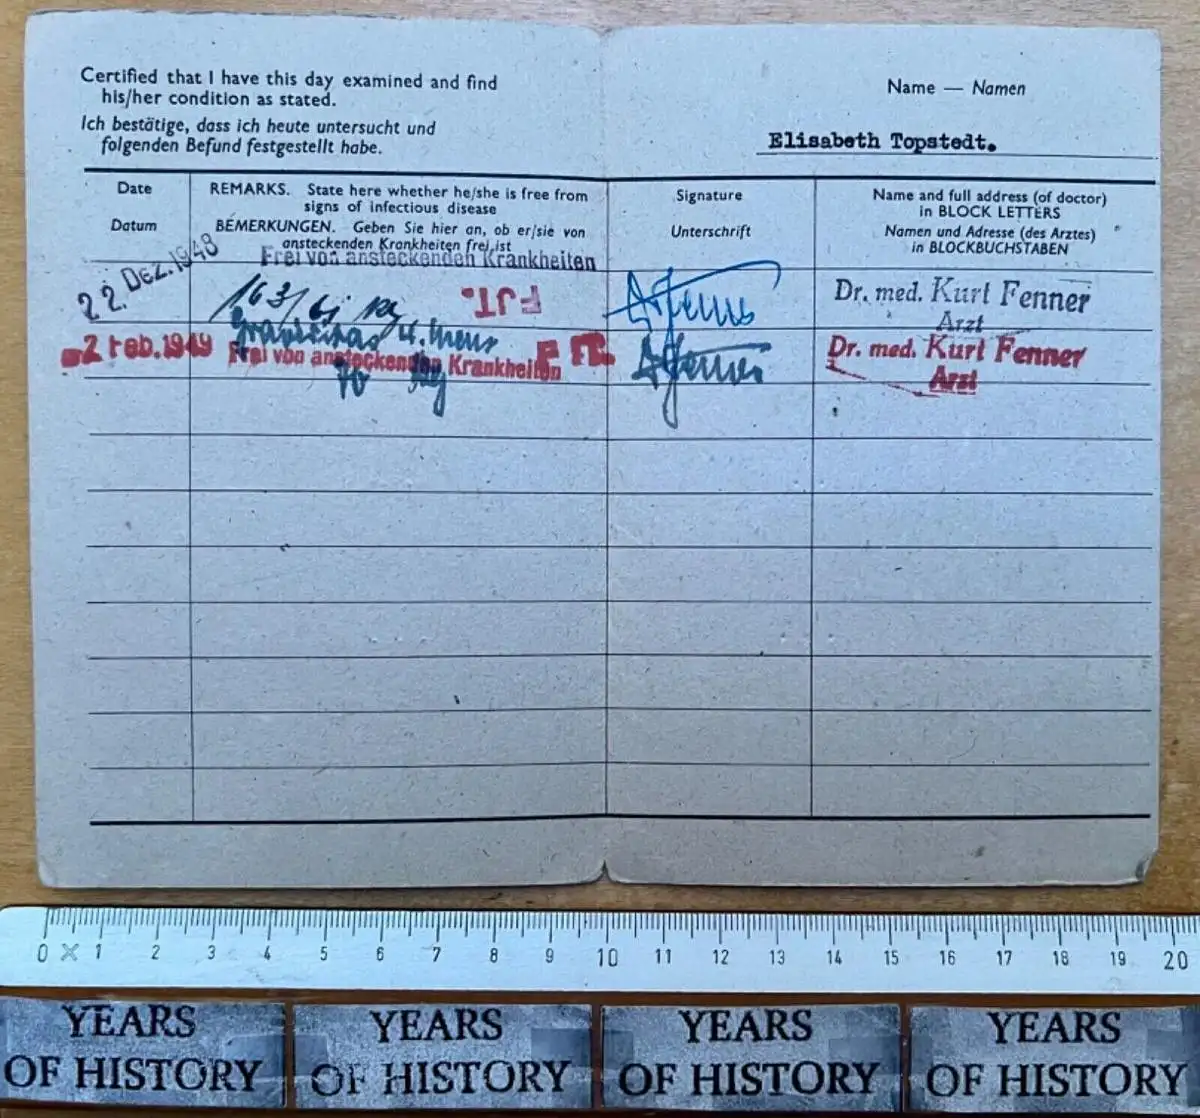 Certified that I have this day examined and find
his/her condition as stated.
Ich bestätige, dass ich heute untersucht und
folgenden Befund festgestellt habe.
Name — Namen
Elisabeth Topstedt.
Date
Datum
REMARKS. State here whether he/she is free from
signs of infectious disease
BEMERKUNGEN. Geben Sie hier an, ob er/sie von
ansteckenden Krankheiten frei ist
Signature
Unterschrift
Name and full address (of doctor)
in BLOCK LETTERS
Namen und Adresse (des Arztes)
in BLOCKBUCHSTABEN
22. Dez. 1948
Frei von ansteckenden Krankheiten
163/61 kg
Dr. med. Kurt Fenner
Arzt
Graviditas 4. Mens
-2 Feb. 1949
Frei von ansteckenden Krankheiten
70 kg
Dr. med. Kurt Fenner
Arzt
0 1 2 3 4 5 6 7 8 9 10 11 12 13 14 15 16 17 18 19 20
YEARS OF HISTORY
YEARS OF HISTORY
YEARS OF HISTORY
YEARS OF HISTORY